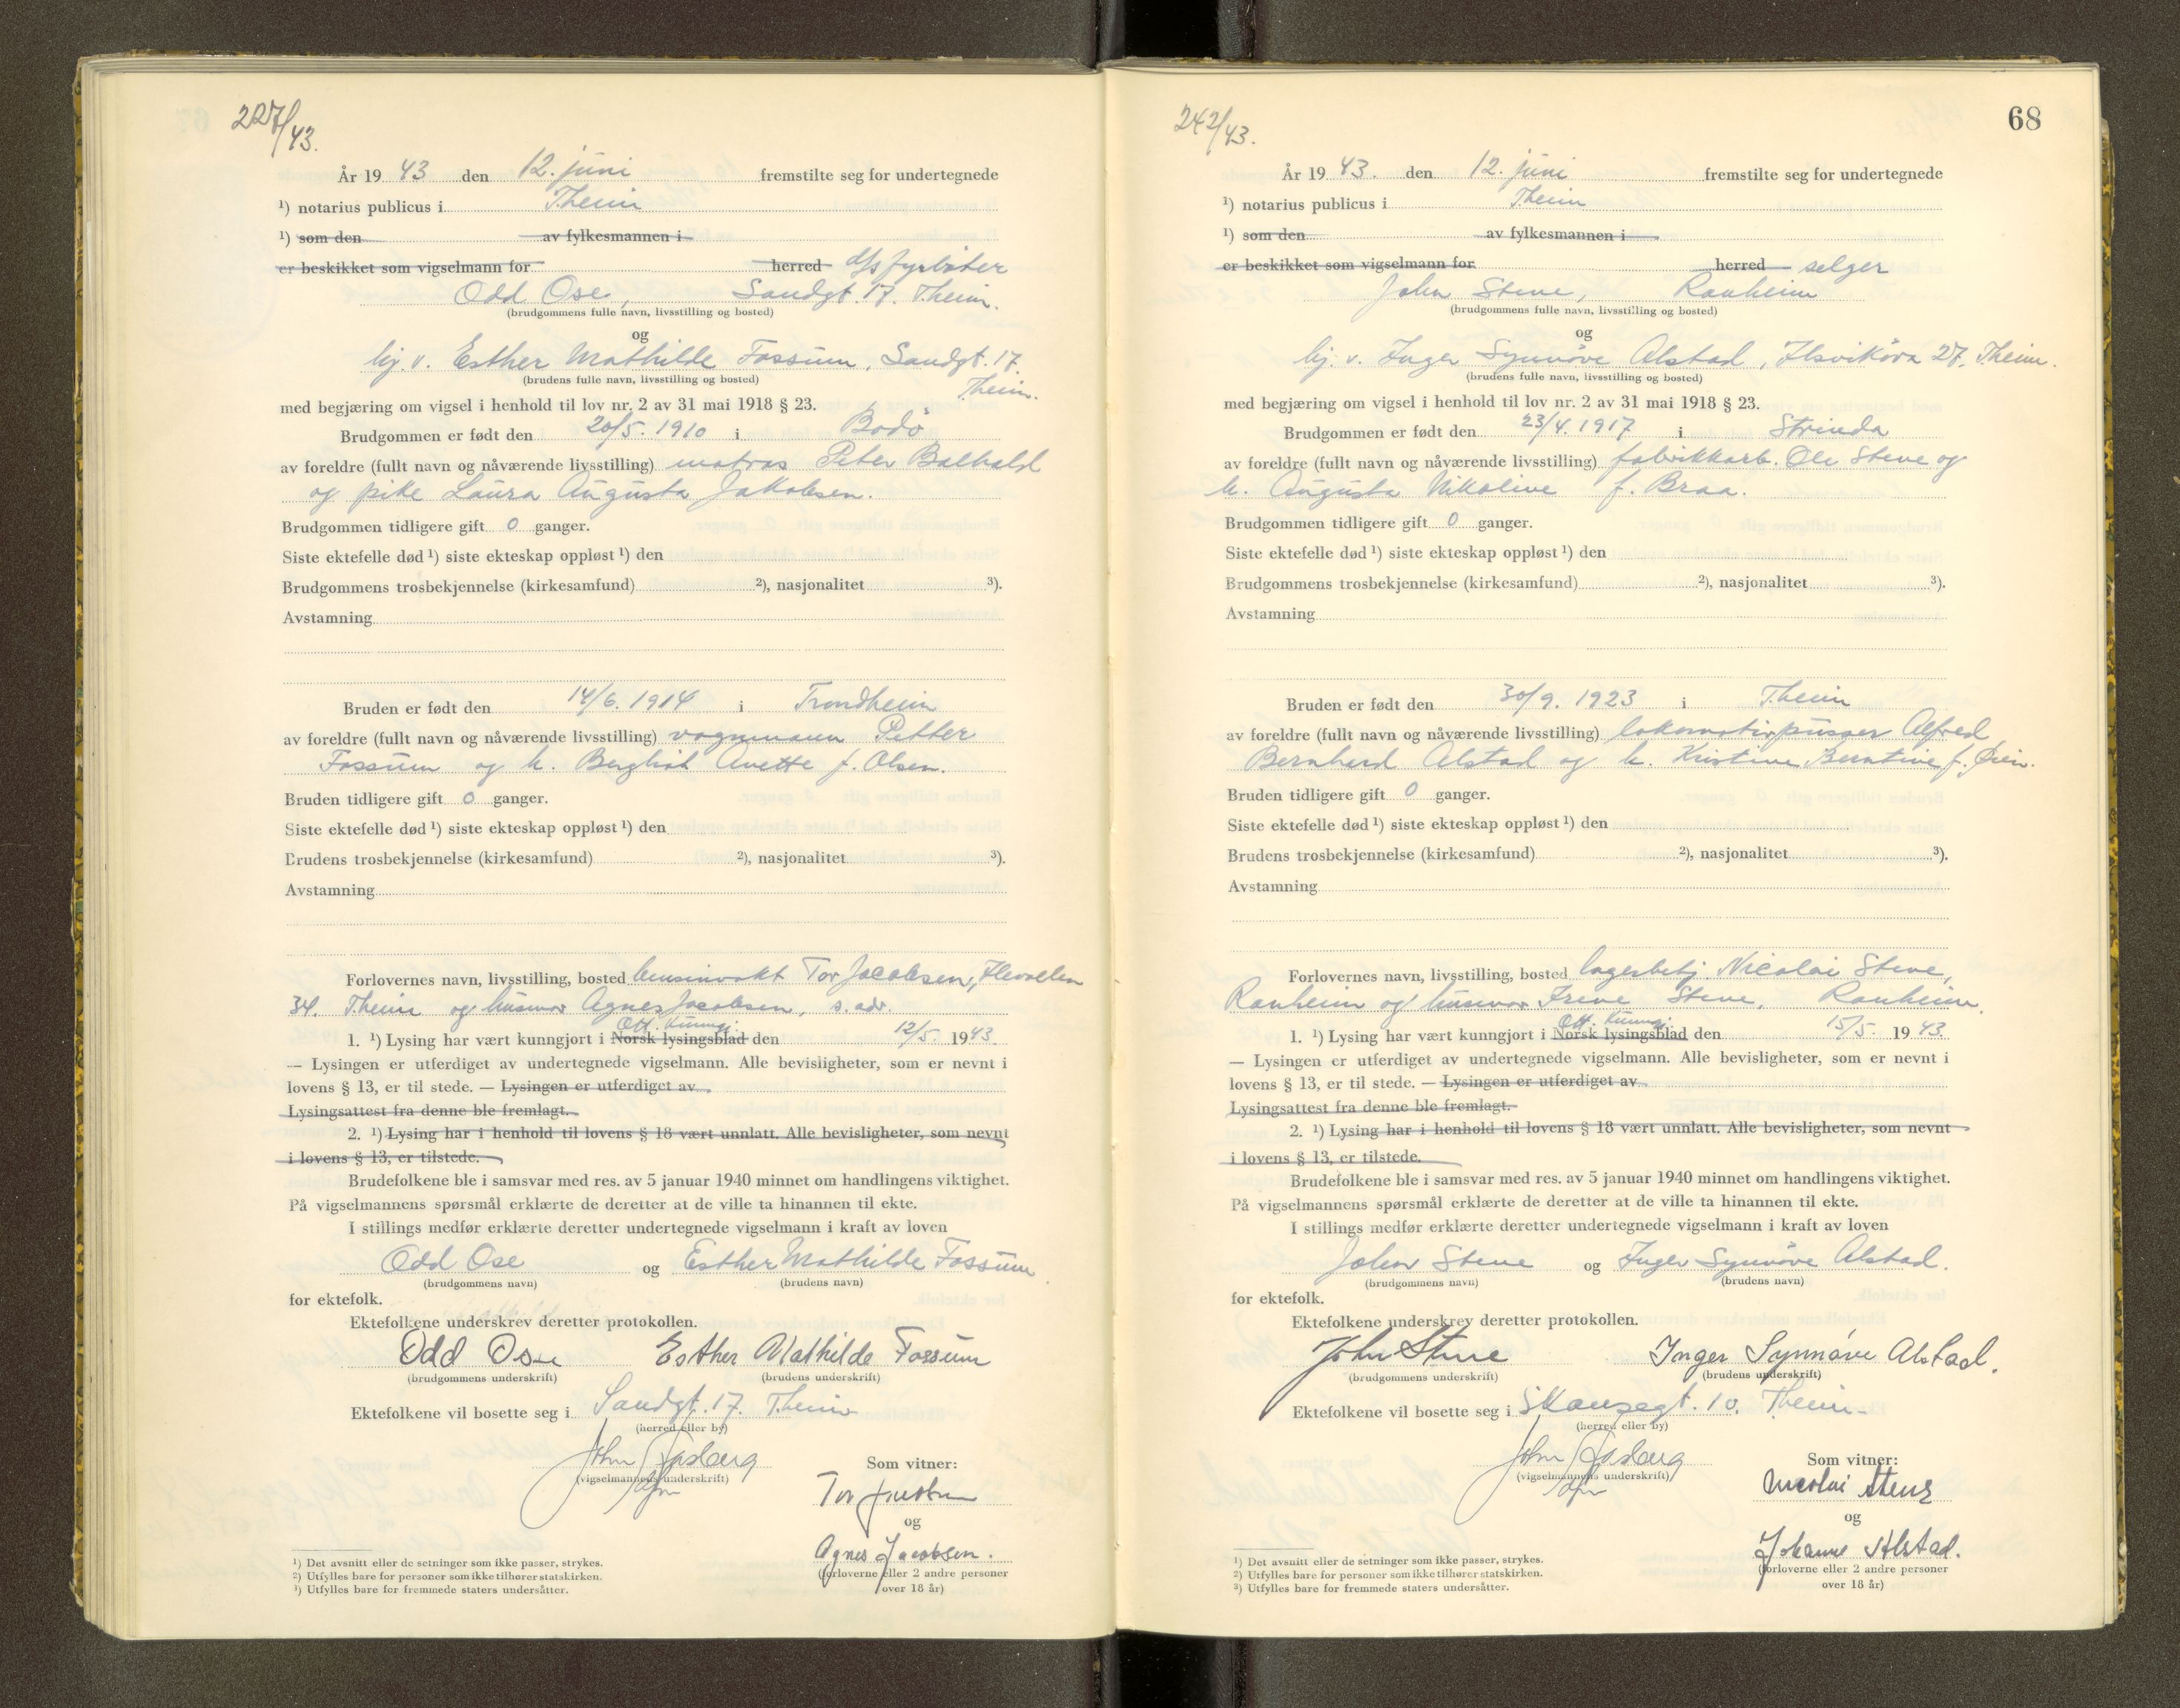 227/43.
År 19 43 den 12. juni fremstilte seg for undertegnede
¹) notarius publicus i Theim
¹) som den av fylkesmannen i
er beskikket som vigselmann for herred d/s fyrbøter
Odd Ose, Sandgt. 17. Theim.
(brudgommens fulle navn, livsstilling og bosted)
og
hj. v. Esther Mathilde Fossum, Sandgt. 17.
(brudens fulle navn, livsstilling og bosted)
Theim.
med begjæring om vigsel i henhold til lov nr. 2 av 31 mai 1918 § 23.
Brudgommen er født den 20/5. 1910 i Bodø
av foreldre (fullt navn og nåværende livsstilling) matros Peter
og pike Laura Augusta Jakobsen.
Brudgommen tidligere gift 0 ganger.
Siste ektefelle død ¹) siste ekteskap oppløst ¹) den
Brudgommens trosbekjennelse (kirkesamfund) ²), nasjonalitet ³).
Avstamning
Bruden er født den 14/6. 1914 i Trondheim
av foreldre (fullt navn og nåværende livsstilling) vognmann Petter
Fossum og h. Bergliot Anette f. Olsen.
Bruden tidligere gift 0 ganger.
Siste ektefelle død ¹) siste ekteskap oppløst ¹) den
Brudens trosbekjennelse (kirkesamfund) ²), nasjonalitet ³).
Avstamning
Forlovernes navn, livsstilling, bosted Tor Jacobsen, Ilevollen
34. Theim og husmor Agnes Jacobsen, s. adr.
Off. kunngj.
1. ¹) Lysing har vært kunngjort i Norsk lysingsblad den 12/5. 1943.
— Lysingen er utferdiget av undertegnede vigselmann. Alle bevisligheter, som er nevnt i
lovens § 13, er til stede. — Lysingen er utferdiget av
Lysingsattest fra denne ble fremlagt.
2. ¹) Lysing har i henhold til lovens § 18 vært unnlatt. Alle bevisligheter, som nevnt
i lovens § 13, er tilstede.
Brudefolkene ble i samsvar med res. av 5 januar 1940 minnet om handlingens viktighet.
På vigselmannens spørsmål erklærte de deretter at de ville ta hinannen til ekte.
I stillings medfør erklærte deretter undertegnede vigselmann i kraft av loven
Odd Ose og Esther Mathilde Fossum
(brudgommens navn) (brudens navn)
for ektefolk.
Ektefolkene underskrev deretter protokollen.
Odd Ose Esther Mathilde Fossum
(brudgommens underskrift) (brudens underskrift)
Ektefolkene vil bosette seg i Sandgt. 17. Theim
(herred eller by)
John
(vigselmannens underskrift)
Som vitner:
Tor Jacobsen
og
Agnes Jacobsen.
(forloverne eller 2 andre personer
over 18 år)
¹) Det avsnitt eller de setninger som ikke passer, strykes.
²) Utfylles bare for personer som ikke tilhører statskirken.
³) Utfylles bare for fremmede staters undersåtter.
242/43.
68
År 19 43. den 12. juni fremstilte seg for undertegnede
¹) notarius publicus i Theim
¹) som den av fylkesmannen i
er beskikket som vigselmann for herred selger
John Stene, Ranheim
(brudgommens fulle navn, livsstilling og bosted)
og
hj. v. Inger Synnøve Alstad, Ilsvikøra 27. Theim.
(brudens fulle navn, livsstilling og bosted)
med begjæring om vigsel i henhold til lov nr. 2 av 31 mai 1918 § 23.
Brudgommen er født den 23/4. 1917 i Strinda
av foreldre (fullt navn og nåværende livsstilling) fabrikkarb. Ole Stene og
h. Augusta Nikoline f. Braa.
Brudgommen tidligere gift 0 ganger.
Siste ektefelle død ¹) siste ekteskap oppløst ¹) den
Brudgommens trosbekjennelse (kirkesamfund) ²), nasjonalitet ³).
Avstamning
Bruden er født den 30/9. 1923 i Theim
av foreldre (fullt navn og nåværende livsstilling) lokomotivpusser Alfred
Bernhard Alstad og h. Kristine Berntine f. Øien.
Bruden tidligere gift 0 ganger.
Siste ektefelle død ¹) siste ekteskap oppløst ¹) den
Brudens trosbekjennelse (kirkesamfund) ²), nasjonalitet ³).
Avstamning
Forlovernes navn, livsstilling, bosted lagerbetj. Nicolai Stene,
Ranheim og husmor Irene Stene, Ranheim.
Off. kunngj.
1. ¹) Lysing har vært kunngjort i Norsk lysingsblad den 15/5. 19 43.
— Lysingen er utferdiget av undertegnede vigselmann. Alle bevisligheter, som er nevnt i
lovens § 13, er til stede. — Lysingen er utferdiget av
Lysingsattest fra denne ble fremlagt.
2. ¹) Lysing har i henhold til lovens § 18 vært unnlatt. Alle bevisligheter, som nevnt
i lovens § 13, er tilstede.
Brudefolkene ble i samsvar med res. av 5 januar 1940 minnet om handlingens viktighet.
På vigselmannens spørsmål erklærte de deretter at de ville ta hinannen til ekte.
I stillings medfør erklærte deretter undertegnede vigselmann i kraft av loven
John Stene og Inger Synnøve Alstad.
(brudgommens navn) (brudens navn)
for ektefolk.
Ektefolkene underskrev deretter protokollen.
John Stene Inger Synnøve Alstad.
(brudgommens underskrift) (brudens underskrift)
Ektefolkene vil bosette seg i Skansegt. 10. Theim.
(herred eller by)
John
(vigselmannens underskrift)
Som vitner:
Nicolai Stene
og
Johanne Alstad.
(forloverne eller 2 andre personer
over 18 år)
¹) Det avsnitt eller de setninger som ikke passer, strykes.
²) Utfylles bare for personer som ikke tilhører statskirken.
³) Utfylles bare for fremmede staters undersåtter.